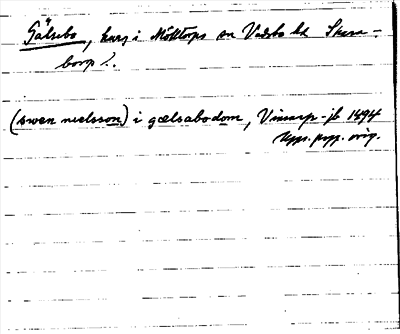 Gälsebo, herg i Mölltorps sn Vadsbo hd Skara-
borgs l.
(swen nielsson) i gælsabodom, Vinsarp-jb 1494
Upps. perg. orig.